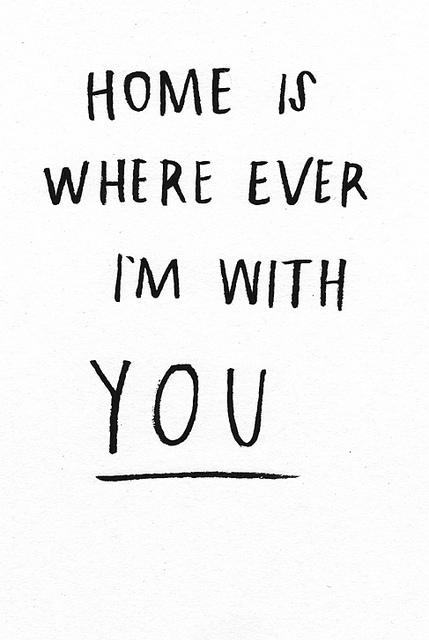 HOME IS
WHERE EVER
I'M WITH
YOU